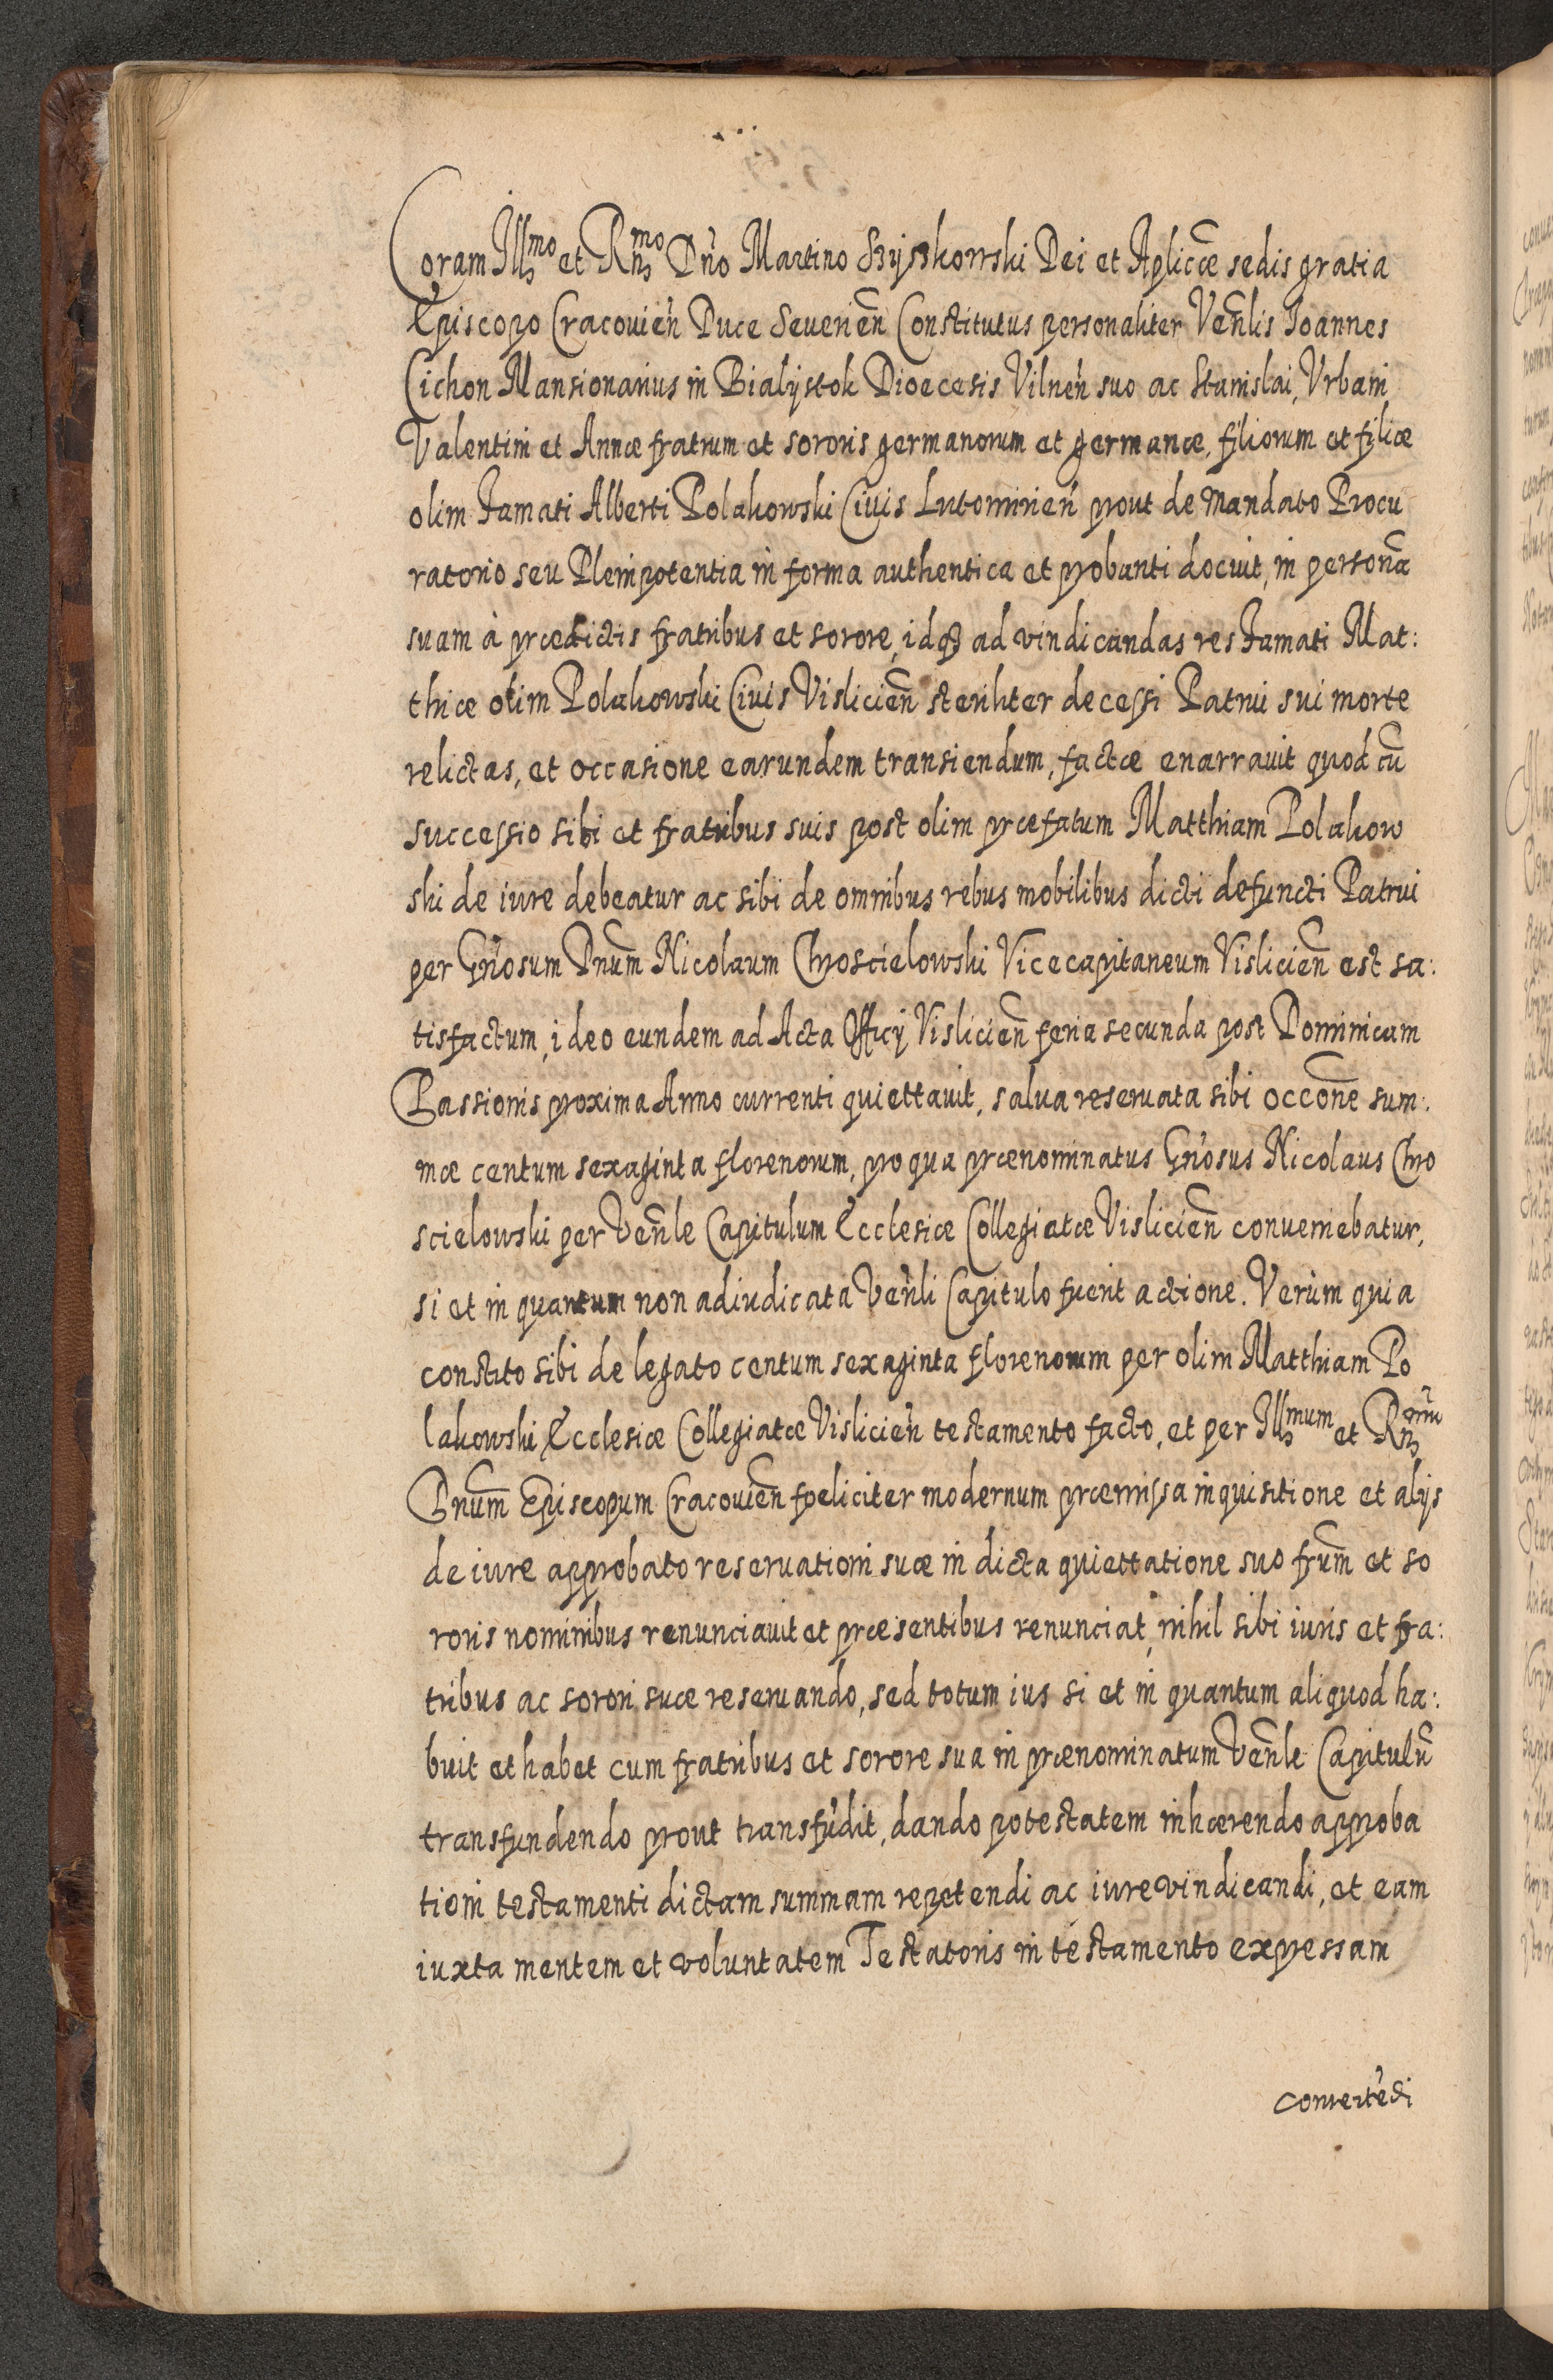 Coram Illmo et Rndmo Dno Martino Szyszkowski Dei et Aplicæ sedis gratia
Episcopo Cracouien Duce Seuerien Constitutus personaliter Venlis Ioannes
Cichon Mansionarius in Bialystok Dioecesis Vilnen suo ac Stanislai, Vrbani
Valentini et Annæ fratrum et sororis germanorum et germanæ, filiorum et filiæ
olim Famati Alberti Polakowski Ciuis Lutomirien prout de Mandato Procu
ratorio seu Plenipotentia in forma authentica et probanti docuit, in persona
suam à prædictis fratribus et sorore, idq3 ad vindicandas res Famati Mat:
thiæ olim Polakowski Ciuis Vislicien steriliter decessi Patrui sui morte
relictas, et occasione earundem transiendum, factæ enarrauit quod cū
successio sibi et fratribus suis post olim præfatum Matthiam Polakow
ski de iure debeatur ac sibi de omnibus rebus mobilibus dicti defuncti Patrui
per Gnosum Dnum Nicolaum Chroscielowski Vicecapitaneum Vislicien est sa:
tisfactum, ideo eundem ad Acta Officij Vislicien feria secunda post Dominicam
Passionis proxima Anno currenti quiettauit, salua reseruata sibi occone sum:
mæ centum sexaginta florenorum, pro qua prænominatus Gnosus Nicolaus Chro
scielowski per Venle Capitulum Ecclesiæ Collegiatæ Vislicien conueniebatur,
si et in quantum non adiudicata Venli Capitulo fuerit actione. Verùm quia
constito sibi de legato centum sexaginta florenorum per olim Matthiam Po
lakowski Ecclesiæ Collegiatæ Vislicien testamento facto, et per Illmum et Rndmū
Dnum Episcopum Cracouien foeliciter modernum præmissa inquisitione et alijs
de iure approbato reseruationi suæ in dicta quiettatione suo frum et so
roris nominibus renunciauit et præsentibus renunciat, nihil sibi iuris et fra:
tribus ac sorori suæ reseruando, sed totum ius si et in quantum aliquod ha:
buit et habet cum fratribus et sorore sua in prænominatum Venle Capitulū
transfundendo prout transfudit, dando potestatem inhærendo approba
tioni testamenti dictam summam repetendi ac iure vindicandi, et eam
iuxta mentem et voluntatem Testatoris in testamento expressam
conuertēdi